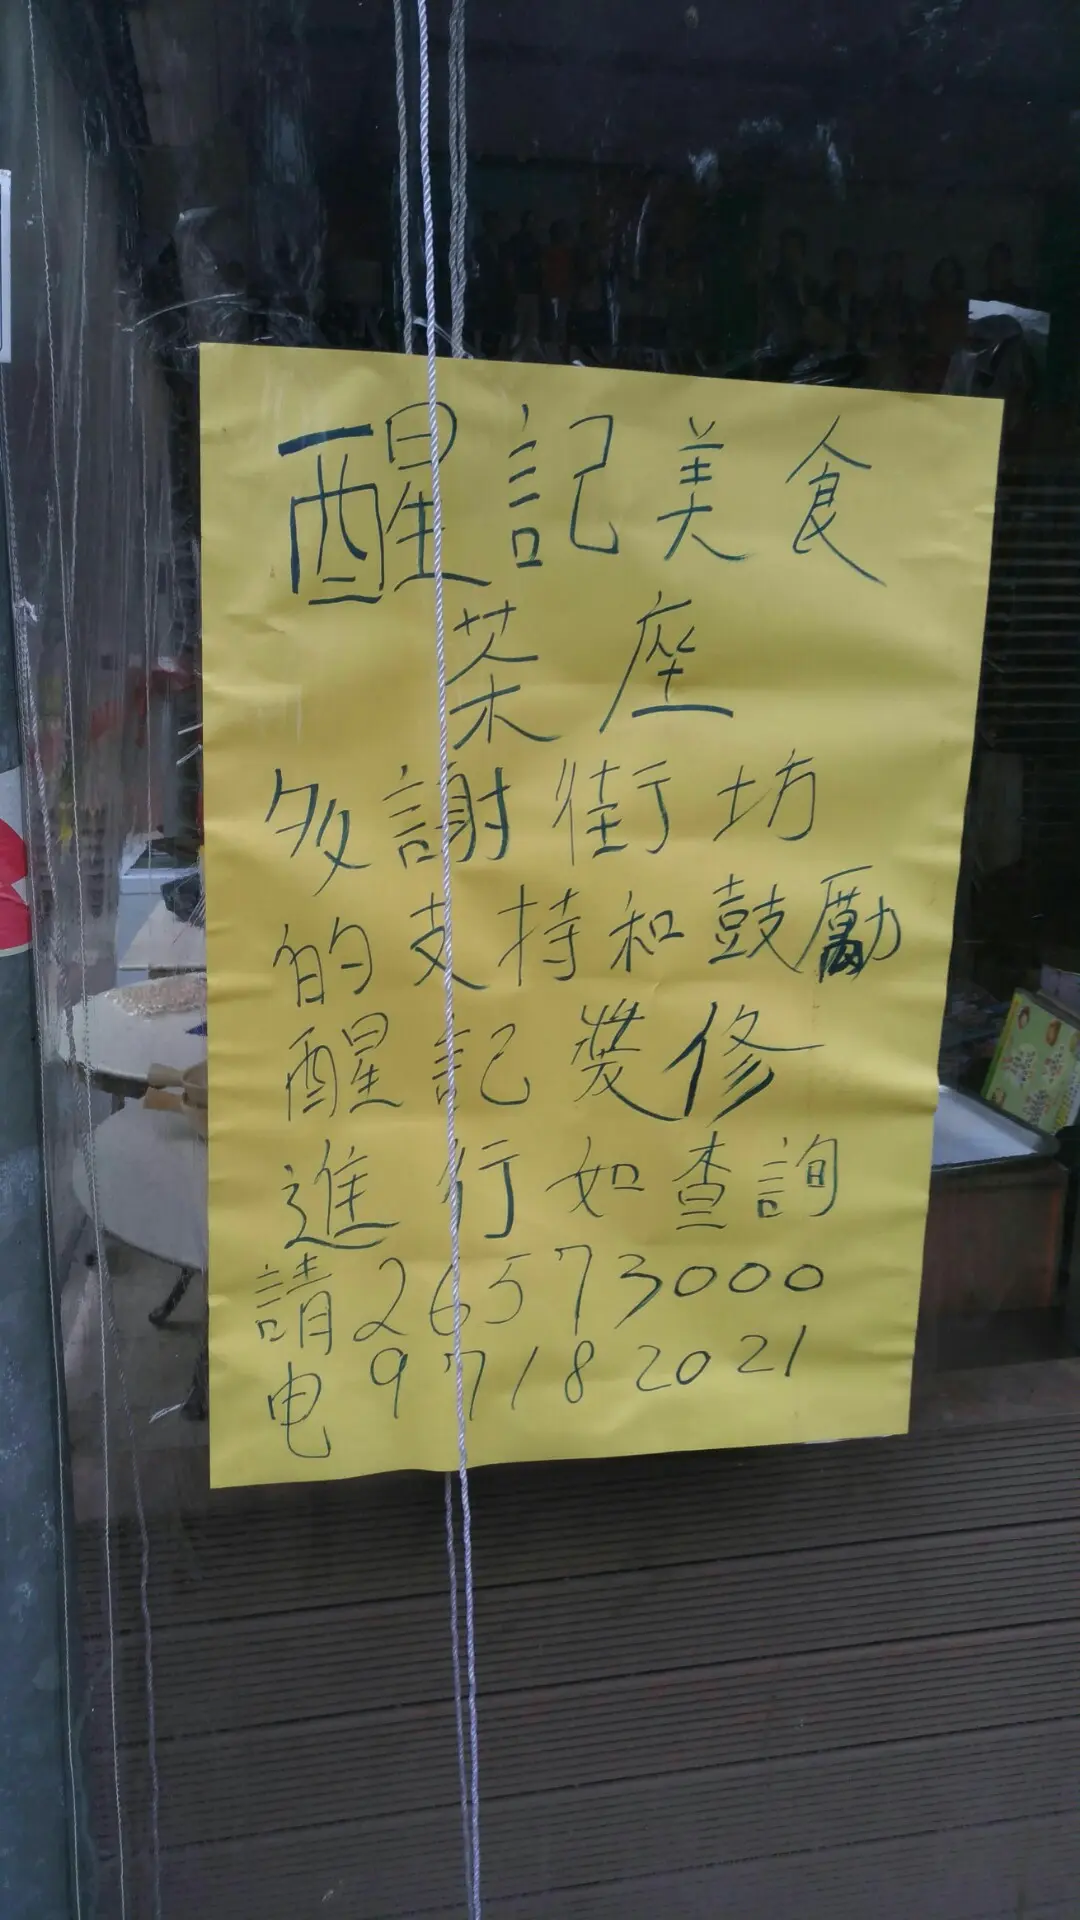 醒記美食
茶座
多謝街坊
的支持和鼓勵
醒記裝修
進行如查詢
請26573000
电97182021